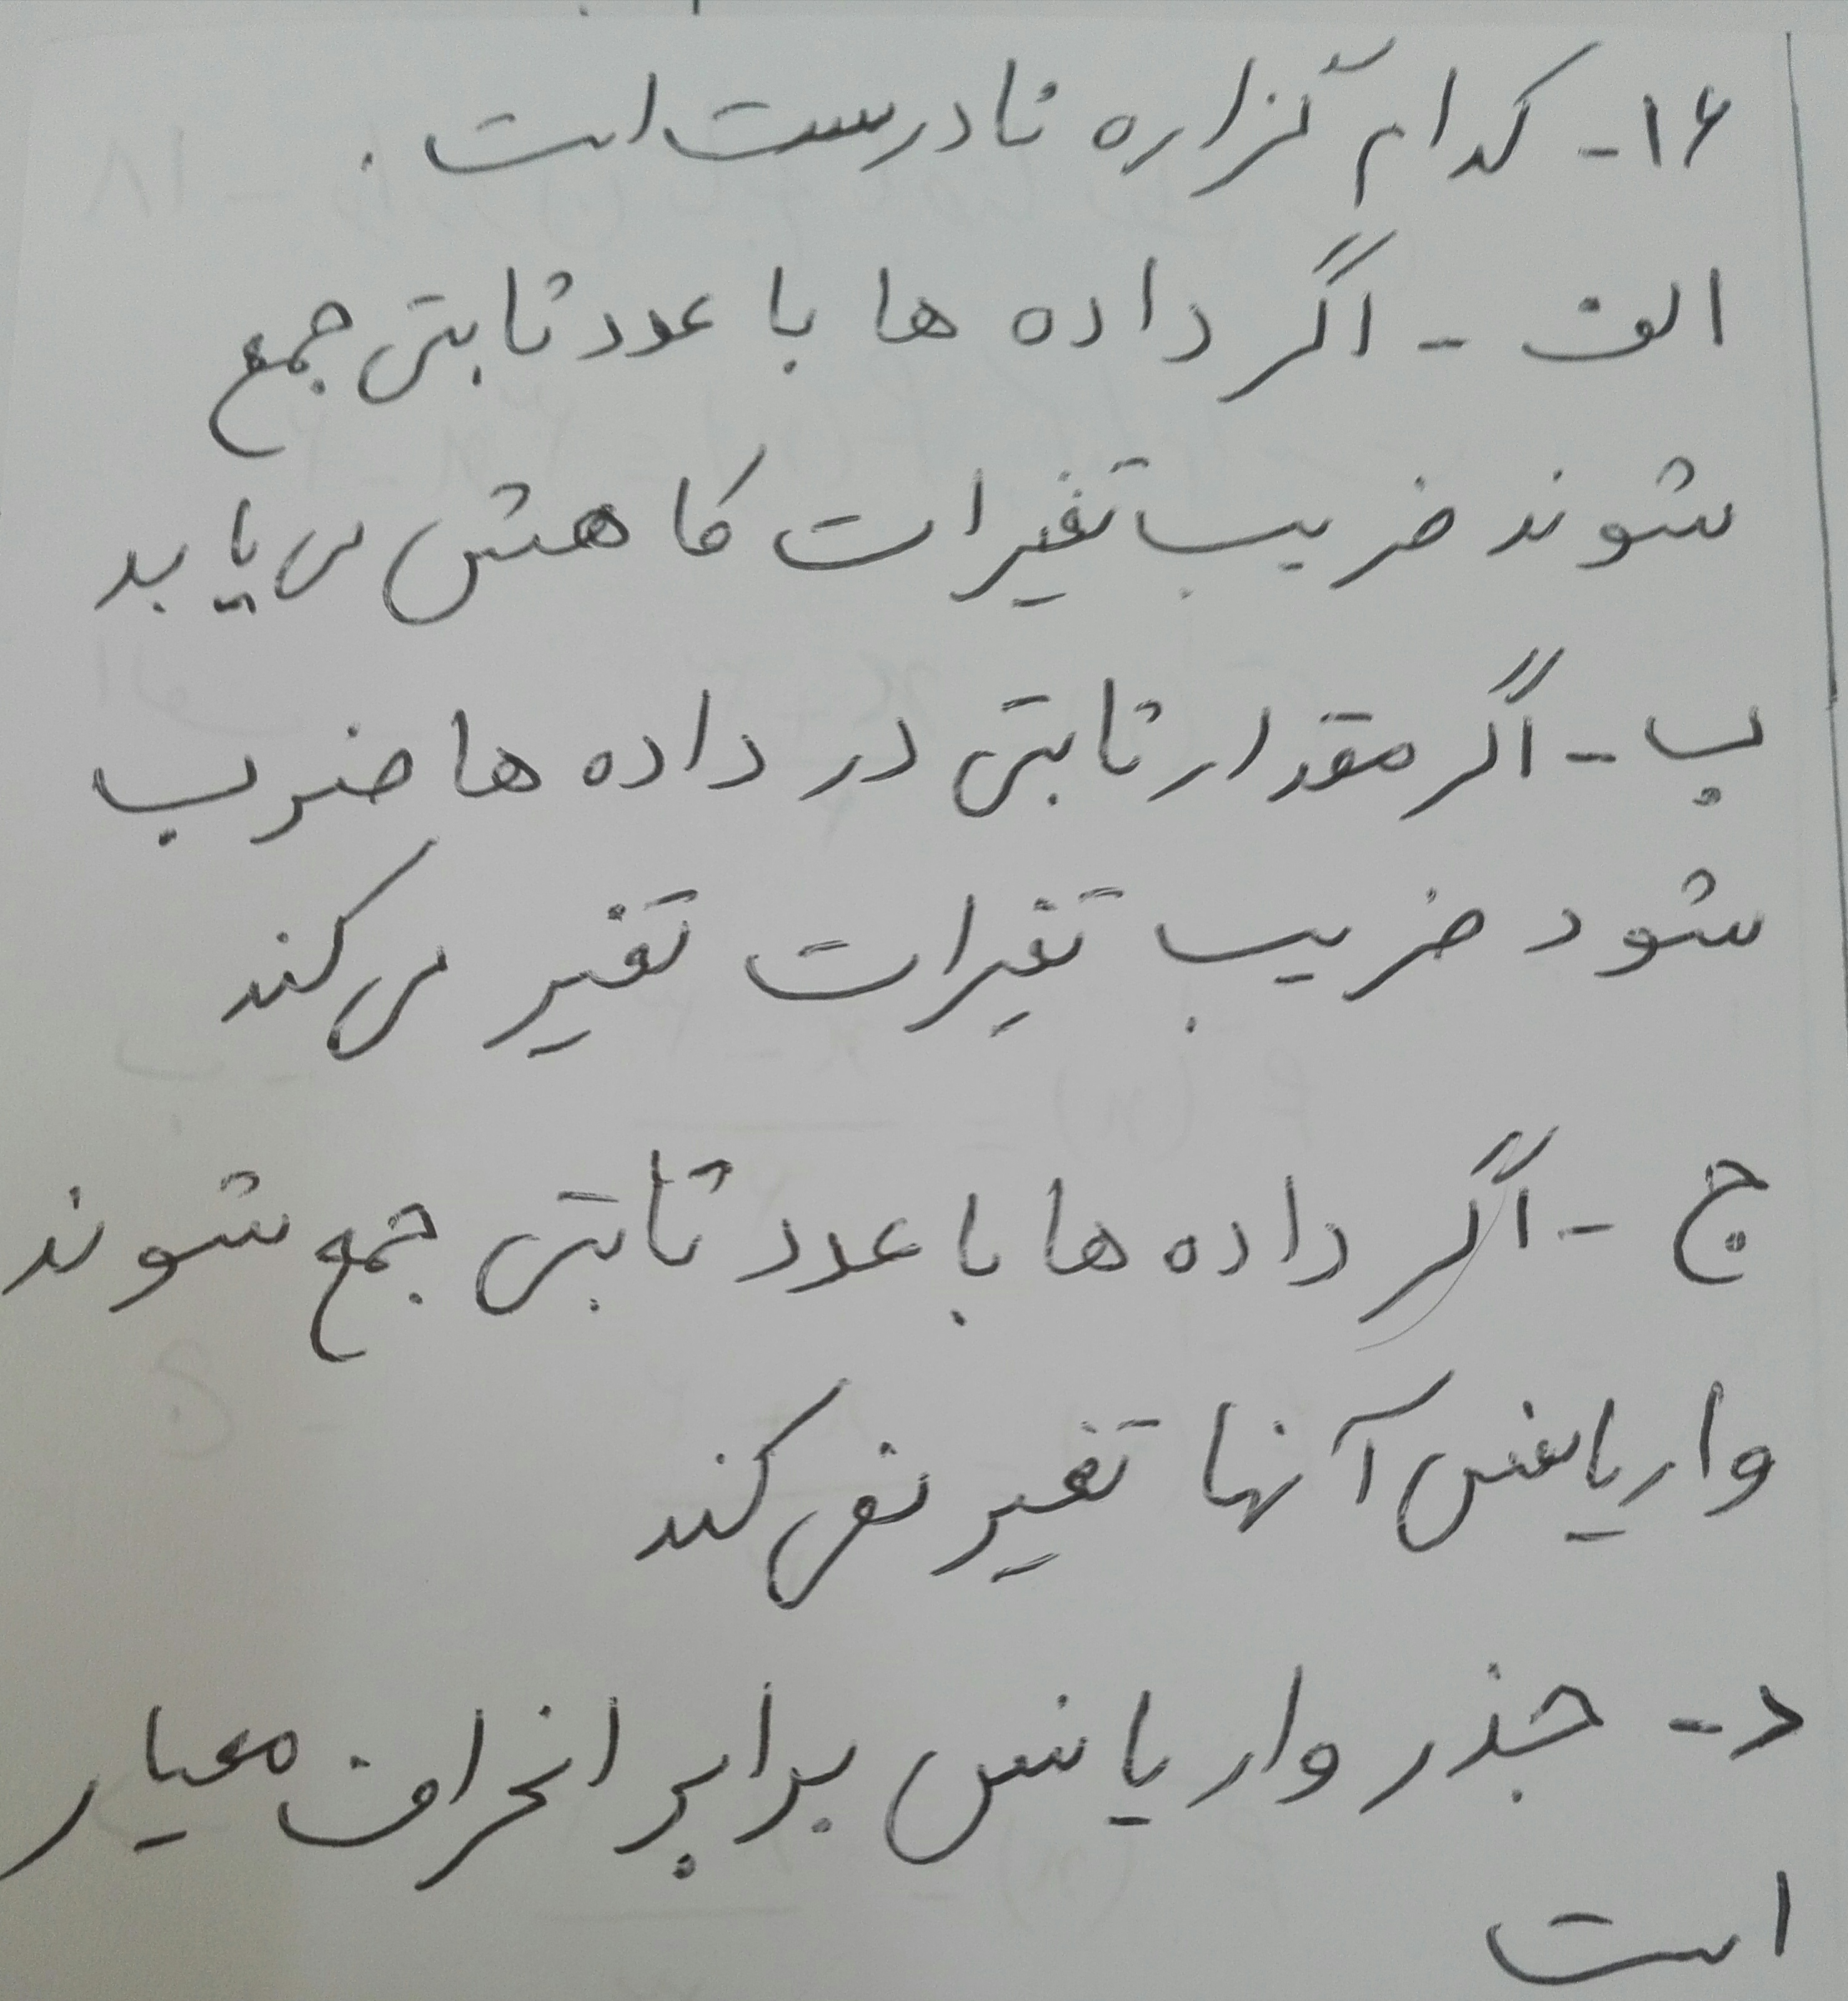 ۱۶- کدام گزاره نادرست است.
الف - اگر داده ها با عدد ثابتی جمع
شوند ضریب تغیرات کاهش می یابد
ب - اگر مقدار ثابتی در داده ها ضرب
شود ضریب تغیرات تغیر می کند
ج - اگر داده ها با عدد ثابتی جمع شوند
واریانس آنها تغیر نمی کند
د - جذر واریانس برابر انحراف معیار
است